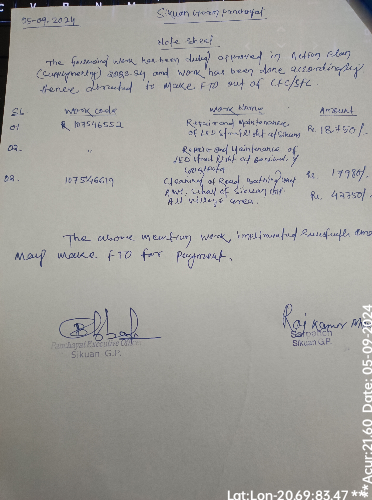 05-09.2024
Sikuan Gram Panchayat
Note sheet
The following work has been duly approved in Action Plan
2023-24 and work has been done accordingly
Hence attracted to make FTO out of CFC/SFC.
Sl. work code work Name Amount
01 107546552 Repair and Maintenance
of LED Street light at Sikuan Rs. 18750/-
02. " Repair and Maintenance of
LED Street light at
Rs 17980/-
03. 107546619 Cleaning of Road
of Sikuan
All village area. Rs. 42750/-
The above mention work,
May make FTO for payment.
Raj Kumar
Panchayat Executive Officer
Sikuan G.P.
Sarpanch
Sikuan G.P.
Lat:Lon-20.69:83.47 ***Acur:2160 Date: 05-09-2024